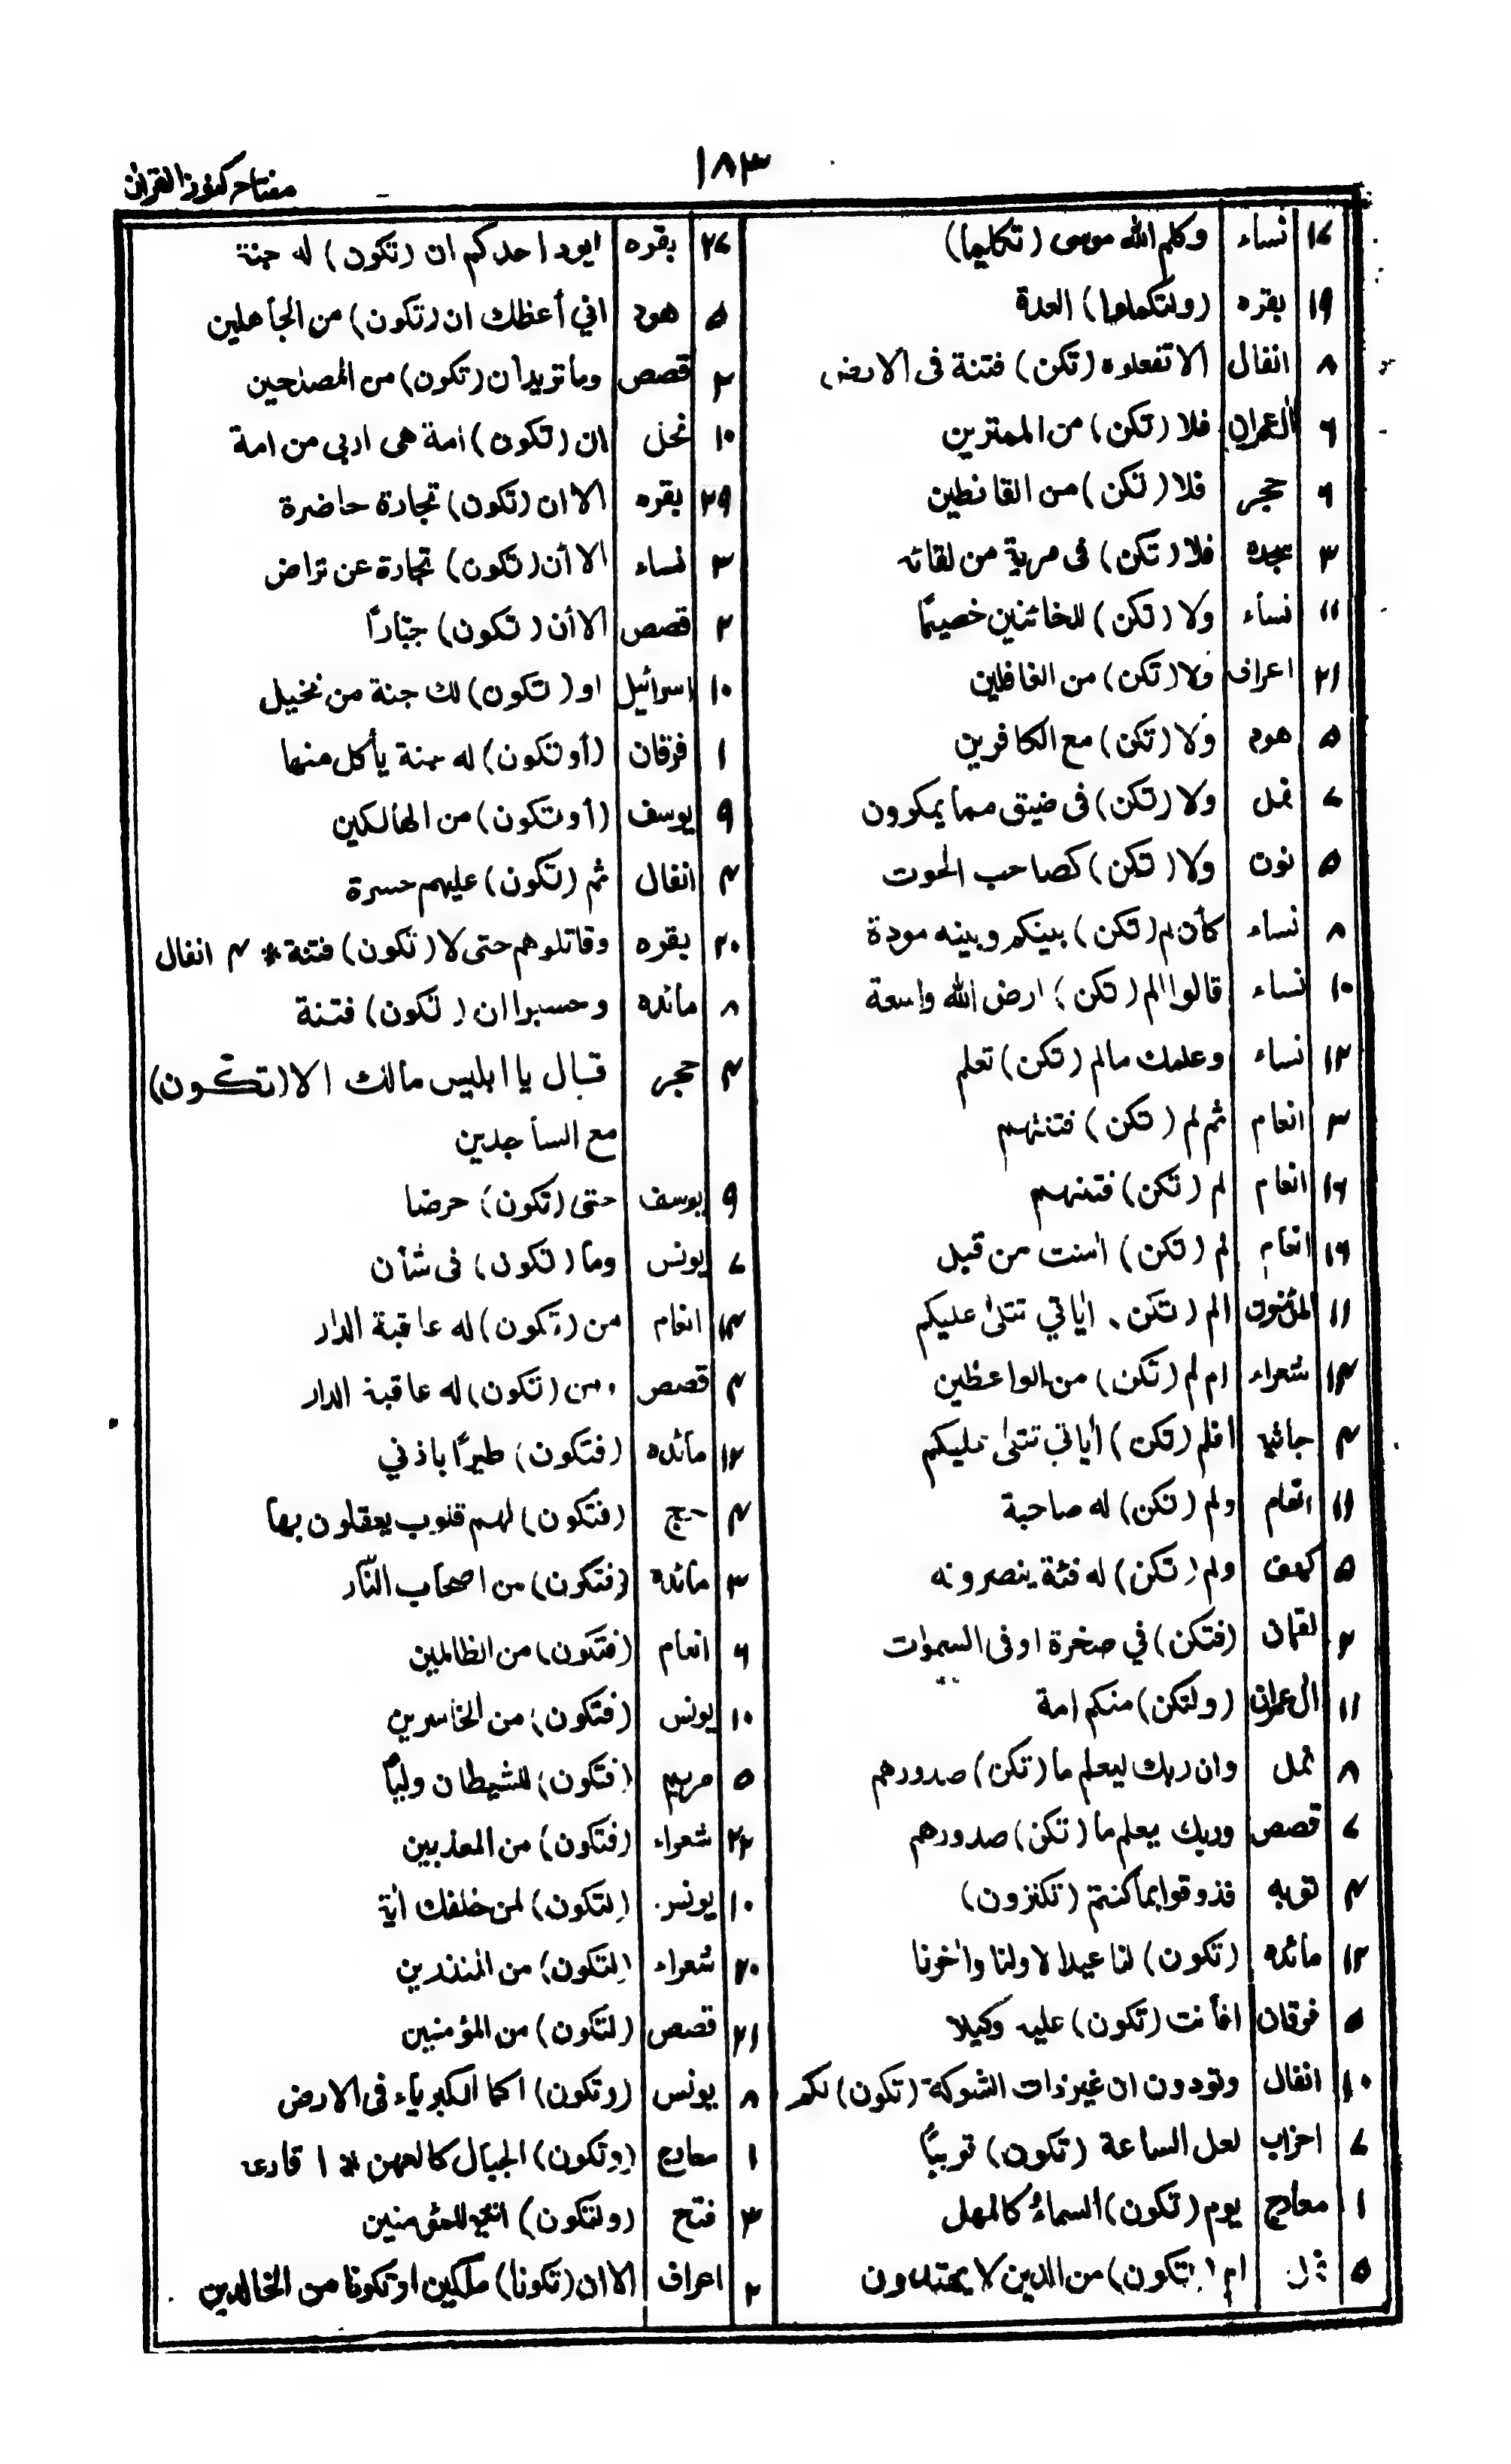 ١٨٣
مفتاح كنوز القران
١٧ نساء وكلم الله موسى (تكليما)
١٩ بقره (ولتكملوا) العدة
٨ انفال الا تفعلوه (تكن) فتنة فى الارض
٦ اٰل عمران فلا (تكن) من الممترين
٦ حجر فلا (تكن) من القانطين
٣ سجده فلا (تكن) فى مرية من لقائه
١١ نساء ولا (تكن) للخائنين خصيمًا
٢١ اعراف ولا (تكن) من الغافلين
٥ هود ولا (تكن) مع الكافرين
٧ نمل ولا (تكن) فى ضيق مما يمكرون
٥ نون ولا (تكن) كصاحب الحوت
٨ نساء كأن لم (تكن) بينكم وبينه مودة
١٠ نساء قالوا الم (تكن) ارض الله واسعة
١٢ نساء وعلمك مالم (تكن) تعلم
٣ انعام ثم لم (تكن) فتنتهم
١٦ انعام لم (تكن) فتنتهم
١٦ انعام لم (تكن) اٰمنت من قبل
١١ المؤمنون الم (تكن) اٰياتي تتلىٰ عليكم
١٣ شعراء ام لم (تكن) من الواعظين
٤ جاثيه افلم (تكن) اٰياتي تتلىٰ عليكم
١١ انعام ولم (تكن) له صاحبة
٥ كهف ولم (تكن) له فئة ينصرونه
٢ لقمان (فتكن) في صخرة او فى السموات
١١ اٰل عمران (ولتكن) منكم امة
٨ نمل وان ربك ليعلم ما (تكن) صدورهم
٧ قصص وربك يعلم ما (تكن) صدورهم
٤ توبه فذوقوا بما كنتم (تكنزون)
١٢ مائده (تكون) لنا عيدا لاولنا واٰخرنا
٥ فرقان افأنت (تكون) عليه وكيلا
١٠ انفال وتودون ان غير ذات الشوكة (تكون) لكم
٧ احزاب لعل الساعة (تكون) قريبًا
١ معارج يوم (تكون) السماءُ كالمهل
٥ ام (تكون) من الذين لا يهتدون
٢٧ بقره ايود احدكم ان (تكون) له جنة
٥ هود اني أعظك ان (تكون) من الجاهلين
٢ قصص وما تريد ان (تكون) من المصلحين
١٠ نحل ان (تكون) امة هى اربى من امة
٢٩ بقره الا ان (تكون) تجارة حاضرة
٣ نساء الا أن (تكون) تجارة عن تراض
٢ قصص الا أن (تكون) جبّارًا
١٠ اسرائيل او (تكون) لك جنة من نخيل
١ فرقان (أو تكون) له جنة يأكل منها
٩ يوسف (أو تكون) من الهالكين
٤ انفال ثم (تكون) عليهم حسرة
٢٠ بقره وقاتلوهم حتى لا (تكون) فتنة * ٤ انفال
٨ مائده وحسبوا ان (تكون) فتنة
٣ حجر قال يا ابليس مالك الا (تكون)
مع الساجدين
٩ يوسف حتى (تكون) حرضا
٧ يونس وما (تكون) فى شأن
١٣ انعام من (تكون) له عاقبة الدار
٤ قصص ومن (تكون) له عاقبة الدار
١٢ مائده (فتكون) طيرًا باذني
٤ حج (فتكون) لهم قلوب يعقلون بها
٣ مائده (فتكون) من اصحاب النّار
٦ انعام (فتكون) من الظالمين
١٠ يونس (فتكون) من الخاسرين
٥ مريم (فتكون) للشيطان وليًا
٢٢ شعراء (فتكون) من المعذبين
١٠ يونس (لتكون) لمن خلفك اٰية
٢٠ شعراء (لتكون) من المنذرين
٢١ قصص (لتكون) من المؤمنين
٨ يونس (وتكون) لكما الكبرياء فى الارض
١ معارج (وتكون) الجبال كالعهن * ١ قارعه
٣ فتح (ولتكون) اٰية للمؤمنين
٢ اعراف الا ان (تكونا) ملكين او تكونا من الخالدين